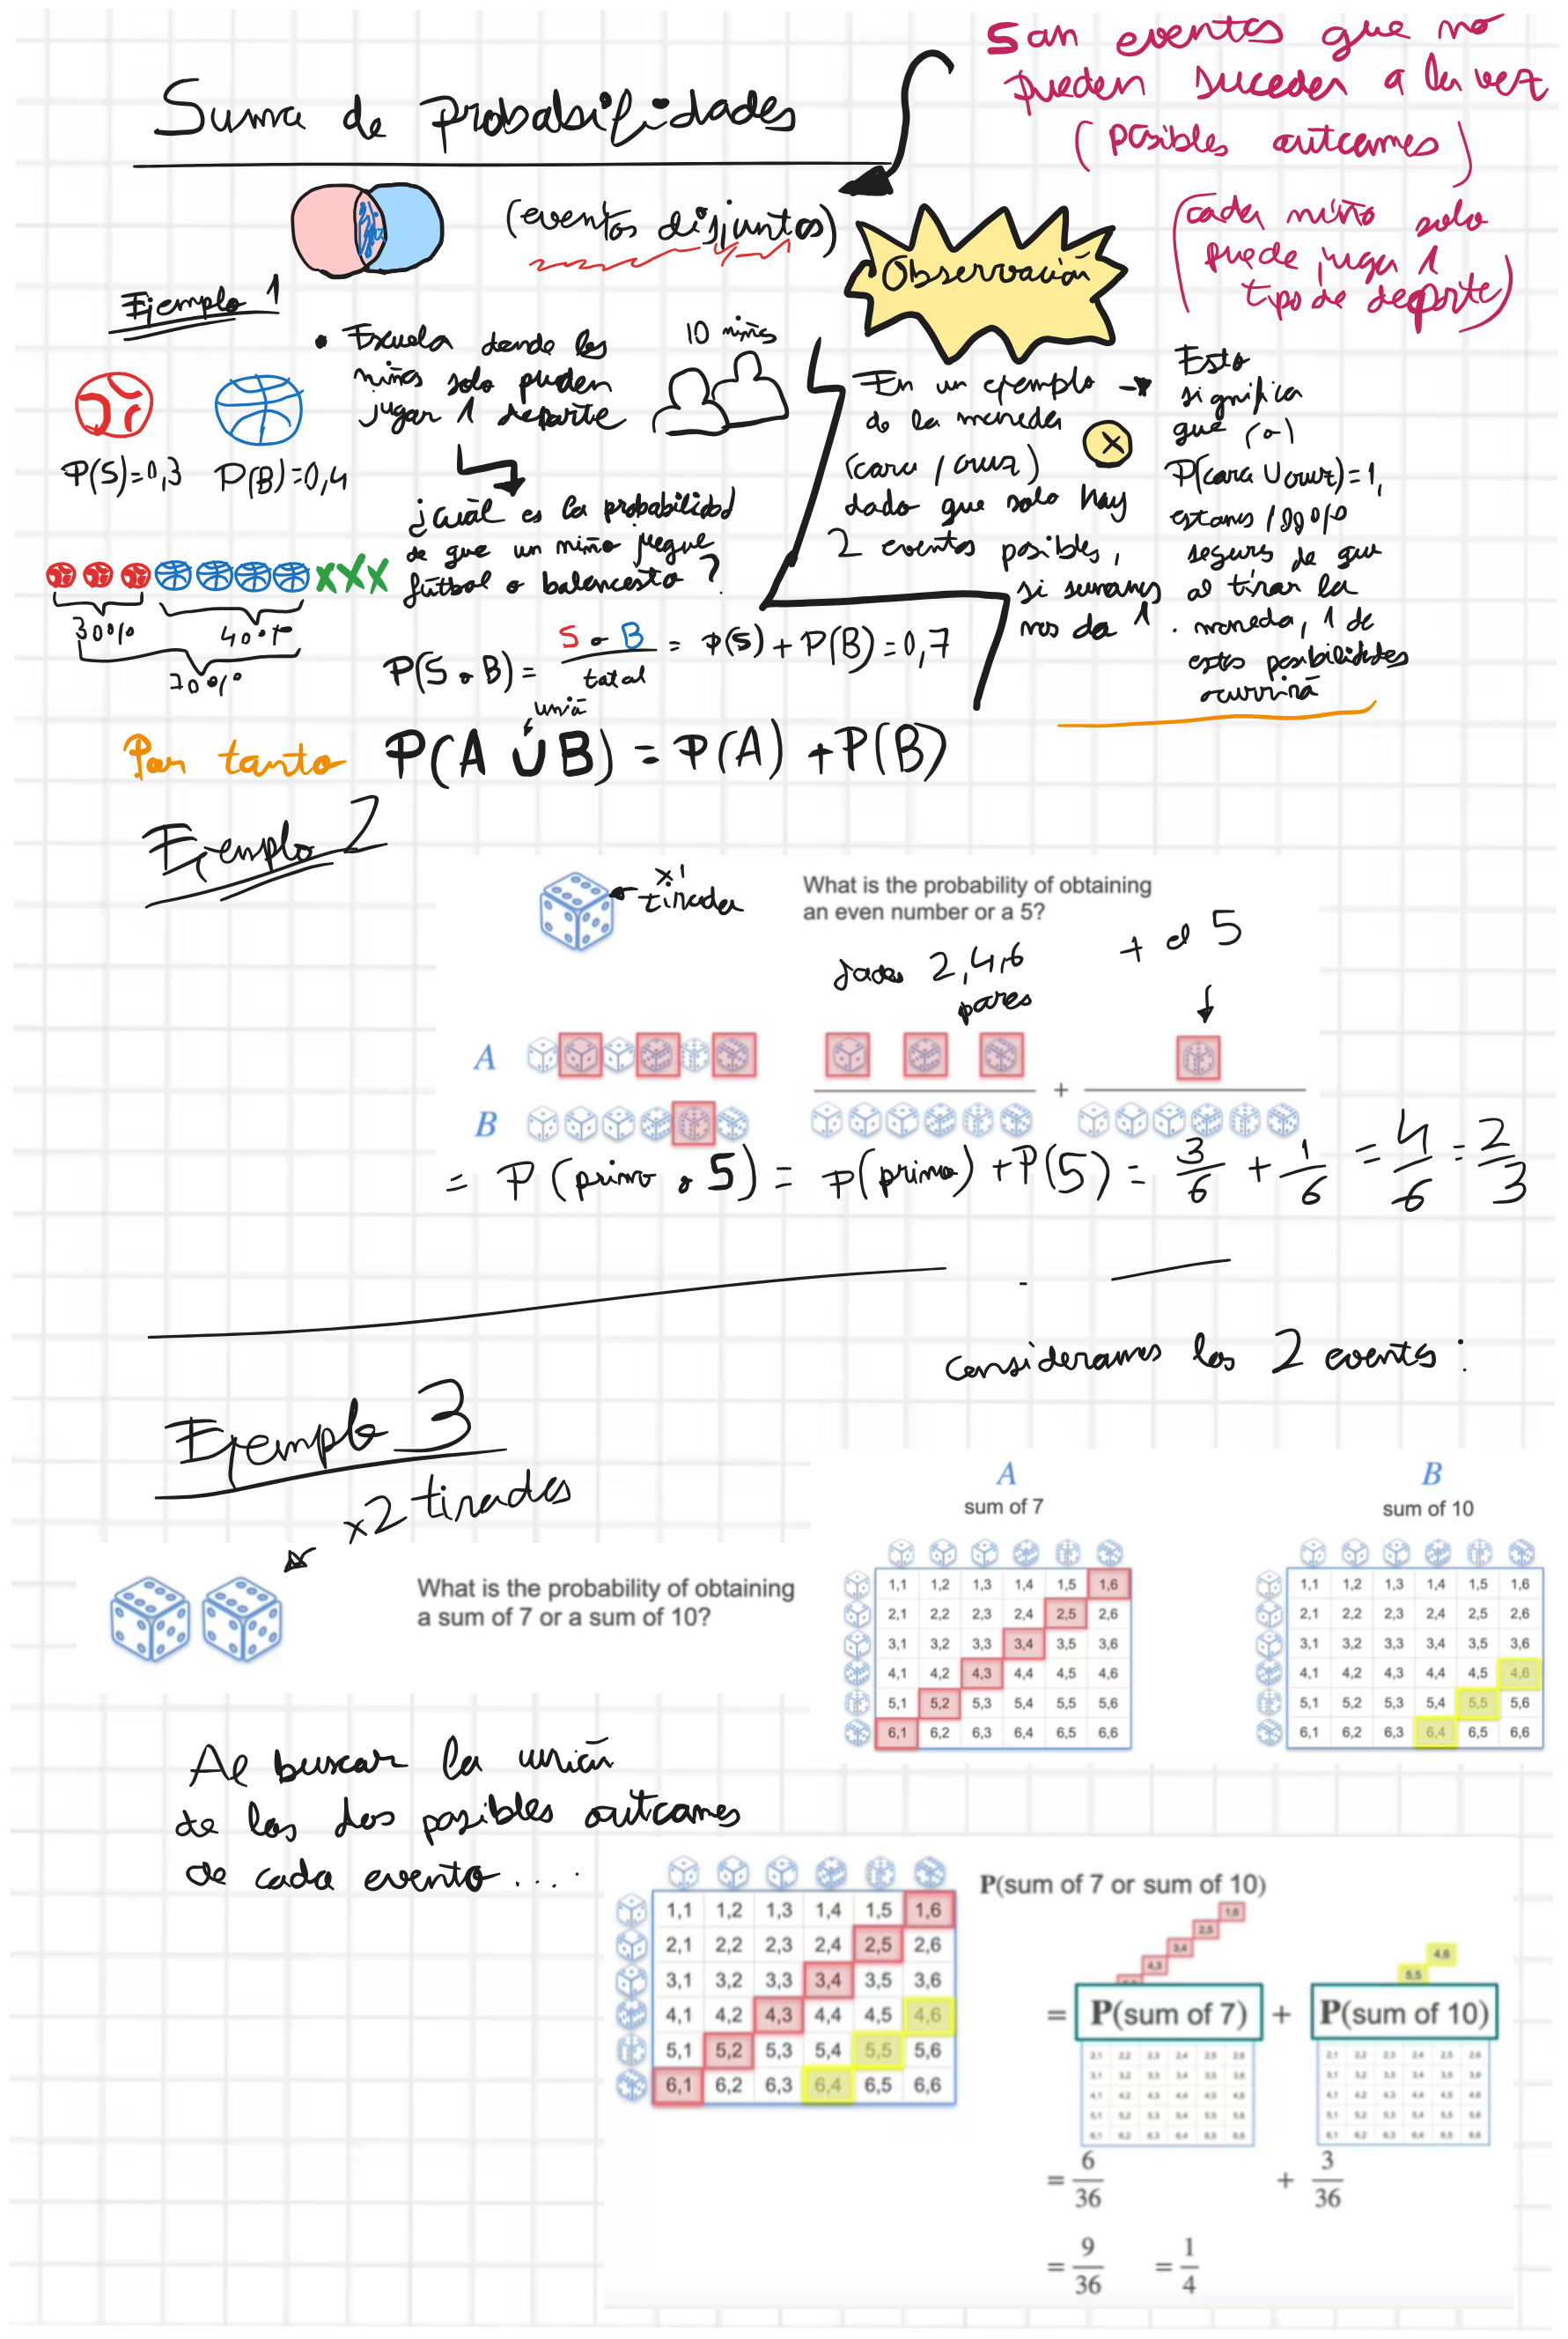 Suma de Probabilidades
Son eventos que no
pueden suceder a la vez
(posibles outcomes)
(cada niño solo
puede jugar 1
tipo de deporte)
(eventos disjuntos)
Observación
Ejemplo 1
• Escuela donde los
niños solo pueden
jugar 1 deporte
10 niños
P(S)=0,3 P(B)=0,4
¿Cuál es la probabilidad
de que un niño juegue
fútbol o baloncesto?
30% 40%
70%
P(S o B) = S o B / total = P(S) + P(B) = 0,7
En un ejemplo
de la moneda
(cara / cruz)
dado que solo hay
2 eventos posibles,
si sumamos
nos da 1.
Esto
significa
que (o)
P(cara ∪ cruz) = 1,
estamos 100%
seguros de que
al tirar la
moneda, 1 de
estas posibilidades
ocurrirá
unión
Por tanto P(A ∪ B) = P(A) + P(B)
Ejemplo 2
x1
tirada
What is the probability of obtaining
an even number or a 5?
dados 2,4,6 + el 5
pares
A
+
B
= P(primo o 5) = P(primo) + P(5) = 3/6 + 1/6 = 4/6 = 2/3
Consideramos los 2 eventos:
Ejemplo 3
x2 tiradas
What is the probability of obtaining
a sum of 7 or a sum of 10?
A
sum of 7
1,1 1,2 1,3 1,4 1,5 1,6
2,1 2,2 2,3 2,4 2,5 2,6
3,1 3,2 3,3 3,4 3,5 3,6
4,1 4,2 4,3 4,4 4,5 4,6
5,1 5,2 5,3 5,4 5,5 5,6
6,1 6,2 6,3 6,4 6,5 6,6
B
sum of 10
1,1 1,2 1,3 1,4 1,5 1,6
2,1 2,2 2,3 2,4 2,5 2,6
3,1 3,2 3,3 3,4 3,5 3,6
4,1 4,2 4,3 4,4 4,5 4,6
5,1 5,2 5,3 5,4 5,5 5,6
6,1 6,2 6,3 6,4 6,5 6,6
Al buscar la unión
de los dos posibles outcomes
de cada evento ....
1,1 1,2 1,3 1,4 1,5 1,6
2,1 2,2 2,3 2,4 2,5 2,6
3,1 3,2 3,3 3,4 3,5 3,6
4,1 4,2 4,3 4,4 4,5 4,6
5,1 5,2 5,3 5,4 5,5 5,6
6,1 6,2 6,3 6,4 6,5 6,6
P(sum of 7 or sum of 10)
1,6
2,5
3,4
4,3
4,6
5,5
= P(sum of 7) + P(sum of 10)
2,1 2,2 2,3 2,4 2,5 2,6
3,1 3,2 3,3 3,4 3,5 3,6
4,1 4,2 4,3 4,4 4,5 4,6
5,1 5,2 5,3 5,4 5,5 5,6
6,1 6,2 6,3 6,4 6,5 6,6
2,1 2,2 2,3 2,4 2,5 2,6
3,1 3,2 3,3 3,4 3,5 3,6
4,1 4,2 4,3 4,4 4,5 4,6
5,1 5,2 5,3 5,4 5,5 5,6
6,1 6,2 6,3 6,4 6,5 6,6
= 6/36 + 3/36
= 9/36 = 1/4